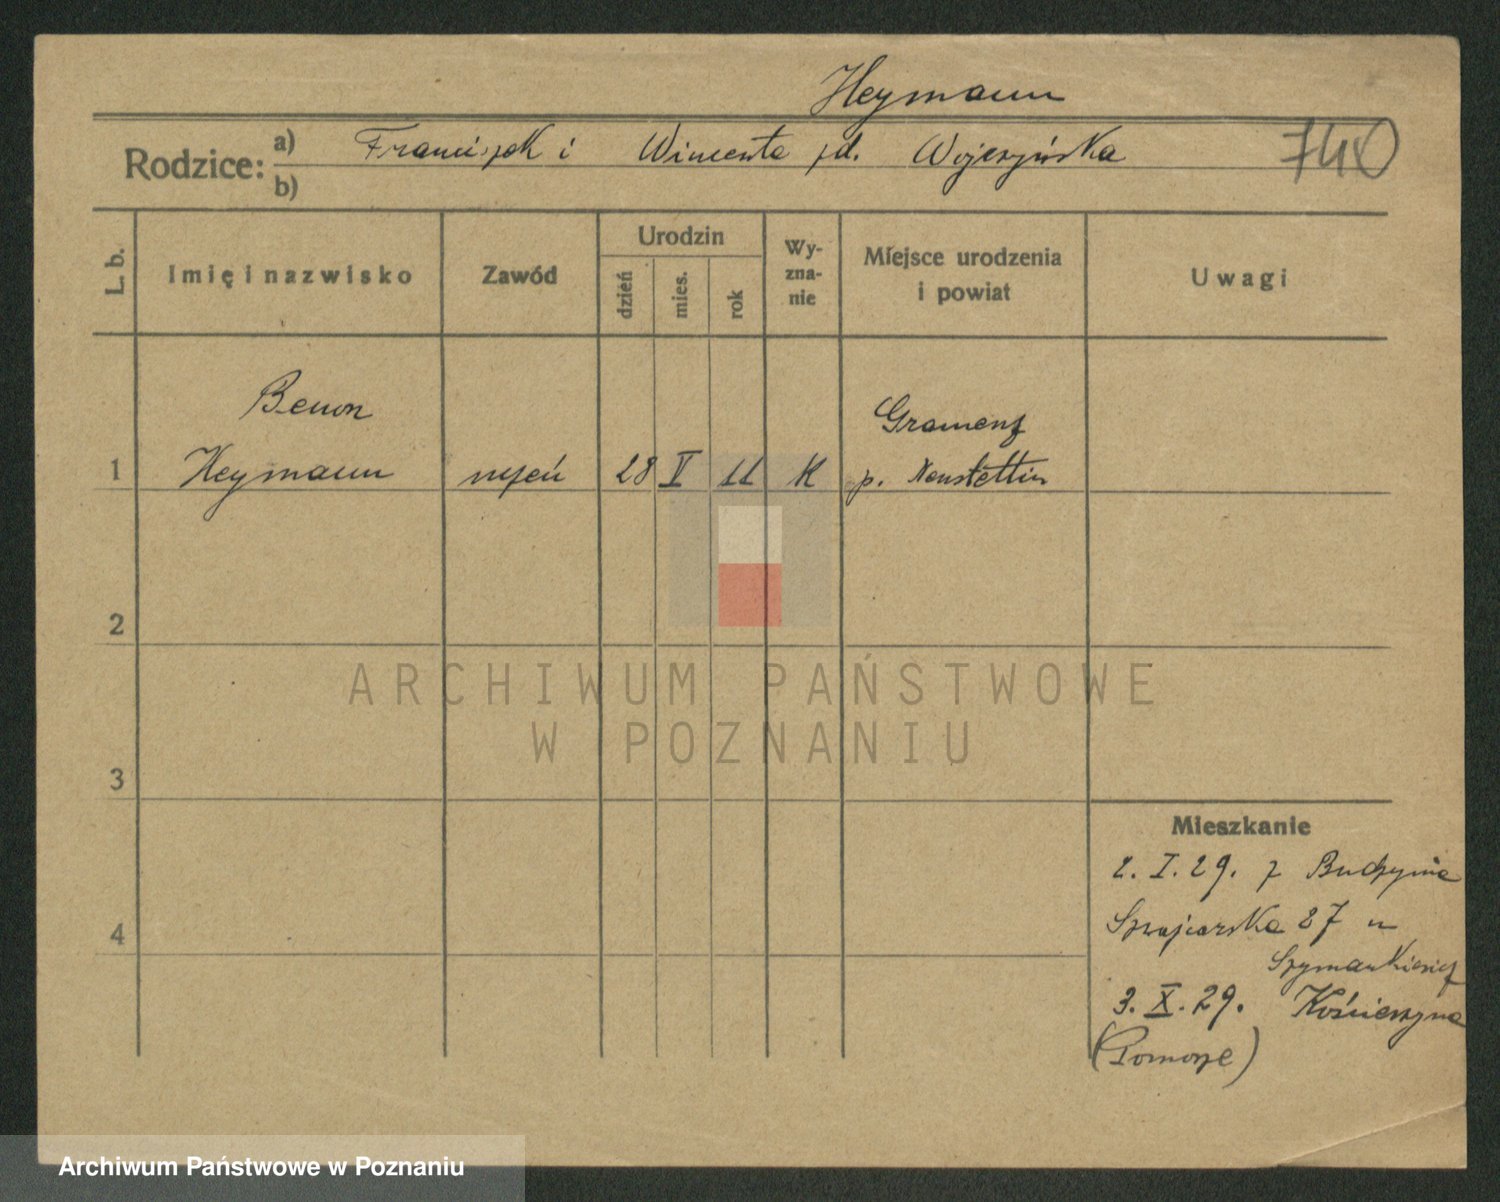 Heymann
Rodzice: a) Franciszek i Wincenta zd. Wojczyńska 740
b)
L. b. Imię i nazwisko Zawód Urodzin dzień mies. rok Wyznanie Miejsce urodzenia i powiat Uwagi
Benon Gramenz
1 Heymann uczeń 28 V 11 K p. Neustettin
2
ARCHIWUM PAŃSTWOWE
W POZNANIU
3
Mieszkanie
2. I. 29. z Budzynia
4 Szwajcarska 27 u
3. X. 29. Kościerzyna
(Pomorze)
Archiwum Państwowe w Poznaniu